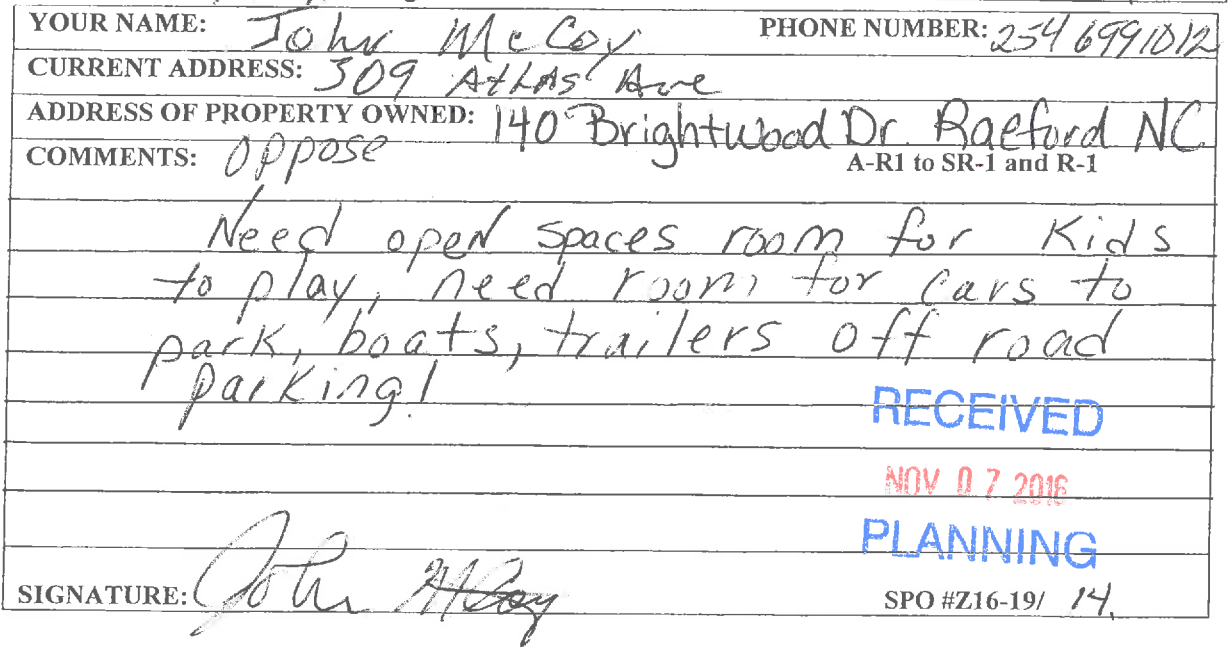 YOUR NAME: John McCoy PHONE NUMBER: 254 6991012
CURRENT ADDRESS: 309 Atlas Ave
ADDRESS OF PROPERTY OWNED: 140 Brightwood Dr. Raeford NC
COMMENTS: Oppose A-R1 to SR-1 and R-1
Need open spaces room for Kids
to play, need room for cars to
park, boats, trailers off road
parking!
RECEIVED
NOV 07 2016
PLANNING
SIGNATURE: John McCoy
SPO #Z16-19/ 14.